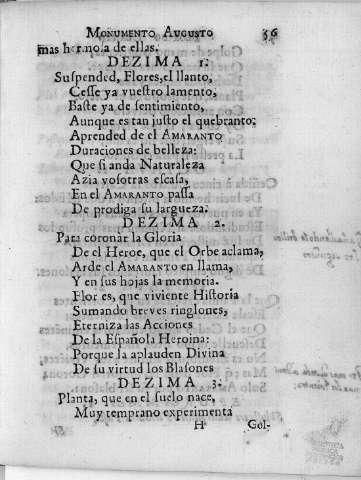 MONUMENTO AUGUSTO 36
mas hermosa de ellas.
DEZIMA 1.
Suspended, Flores, el llanto,
Cesse ya vuestro lamento,
Baste ya de sentimiento,
Aunque es tan justo el quebranto:
Aprended de el AMARANTO
Duraciones de belleza:
Que si anda Naturaleza
Azia vosotras escasa,
En el AMARANTO passa
De prodiga su largueza.
DEZIMA 2.
Para coronar la Gloria
De el Heroe, que el Orbe aclama,
Arde el AMARANTO en llama,
Y en sus hojas la memoria.
Flor es, que viviente Historia
Sumando breves ringlones,
Eterniza las Acciones
De la Española Heroina:
Porque la aplauden Divina
De su virtud los Blasones
DEZIMA 3.
Planta, que en el suelo nace,
Muy temprano experimenta
H Gol-